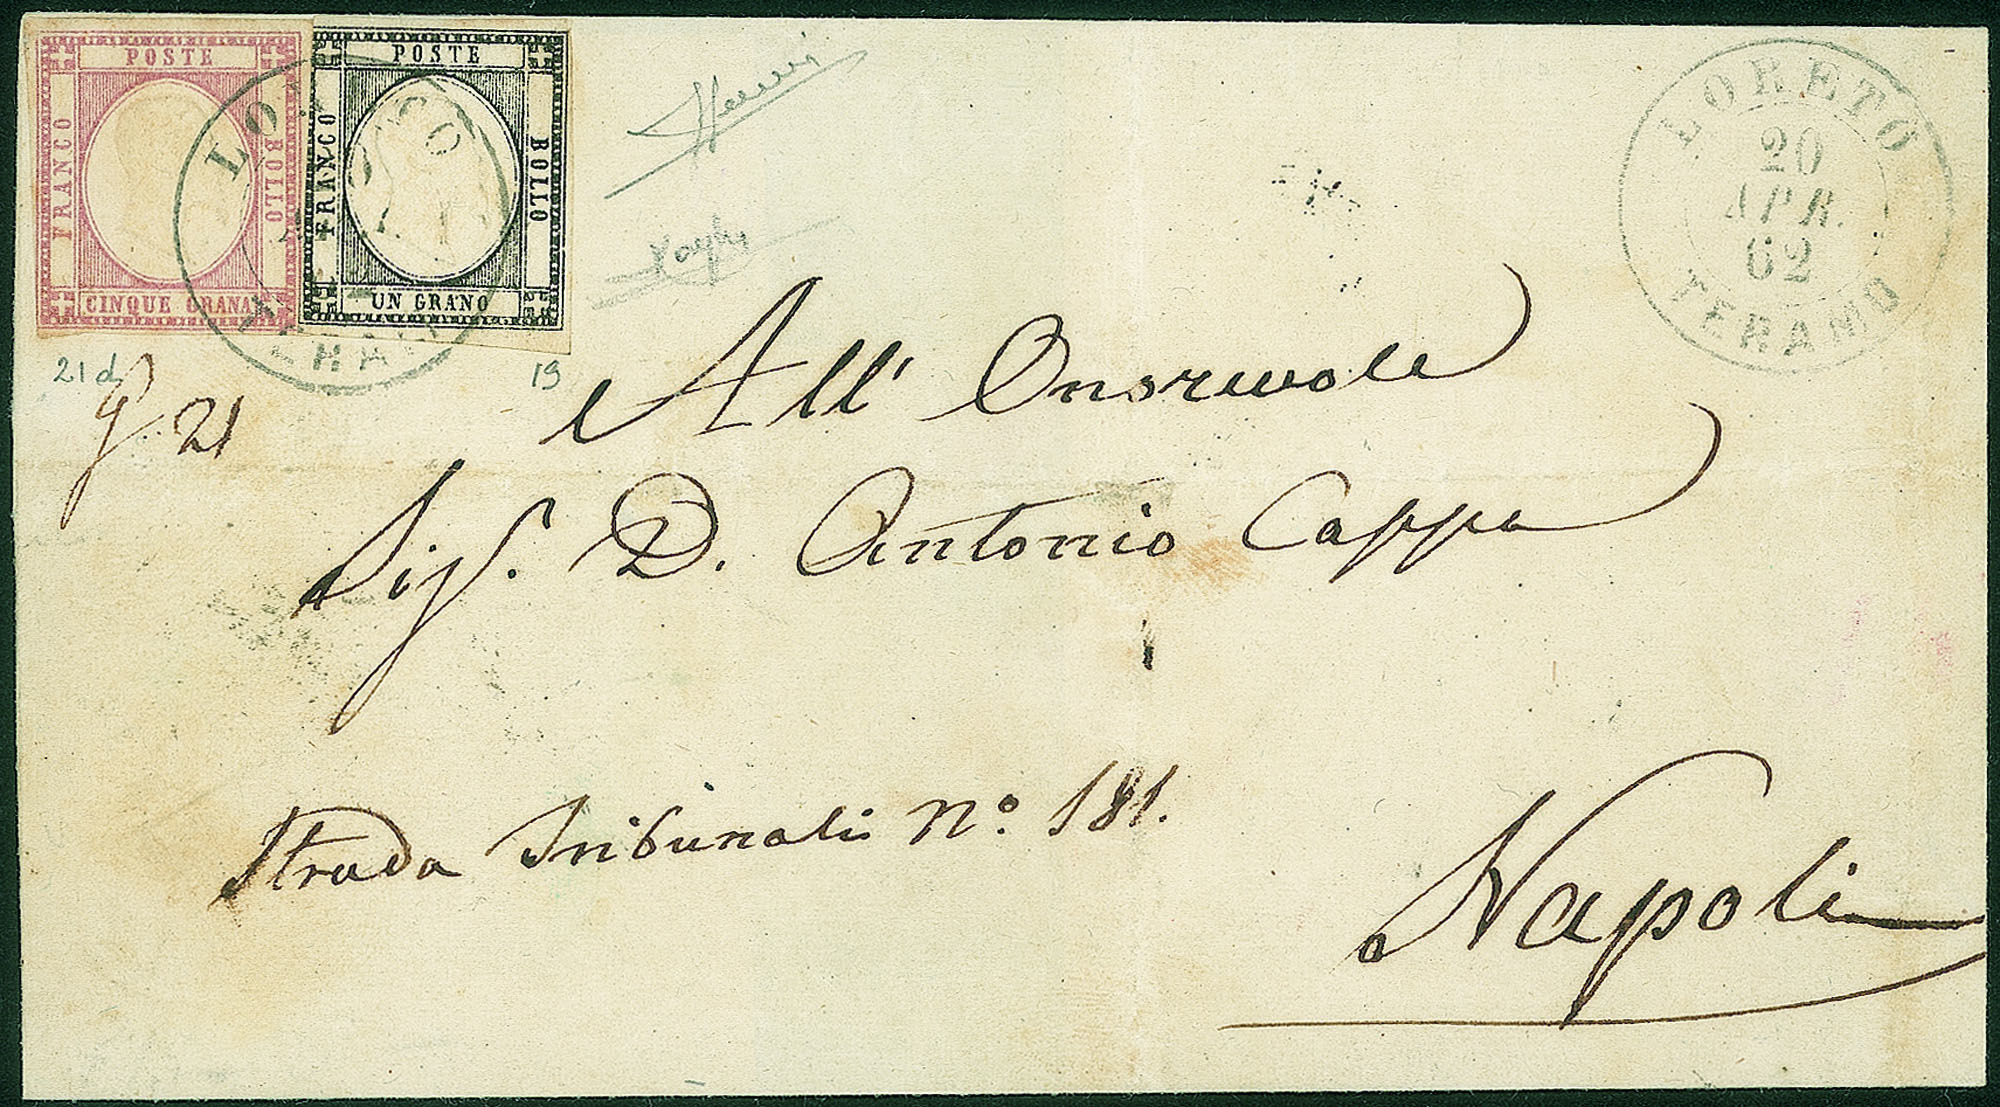 POSTE
FRANCO
BOLLO
CINQUE GRANA
POSTE
FRANCO
BOLLO
UN GRANO
LORETO
20
APR.
62
TERAMO
21 d
19
21
All' Onorevole
Sig. D. Antonio Cappa
Strada Tribunali Nº 181.
Napoli